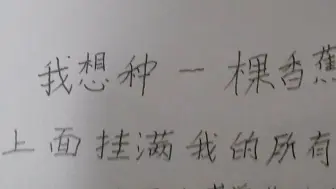 我想种一棵香蕉
上面挂满我的所有